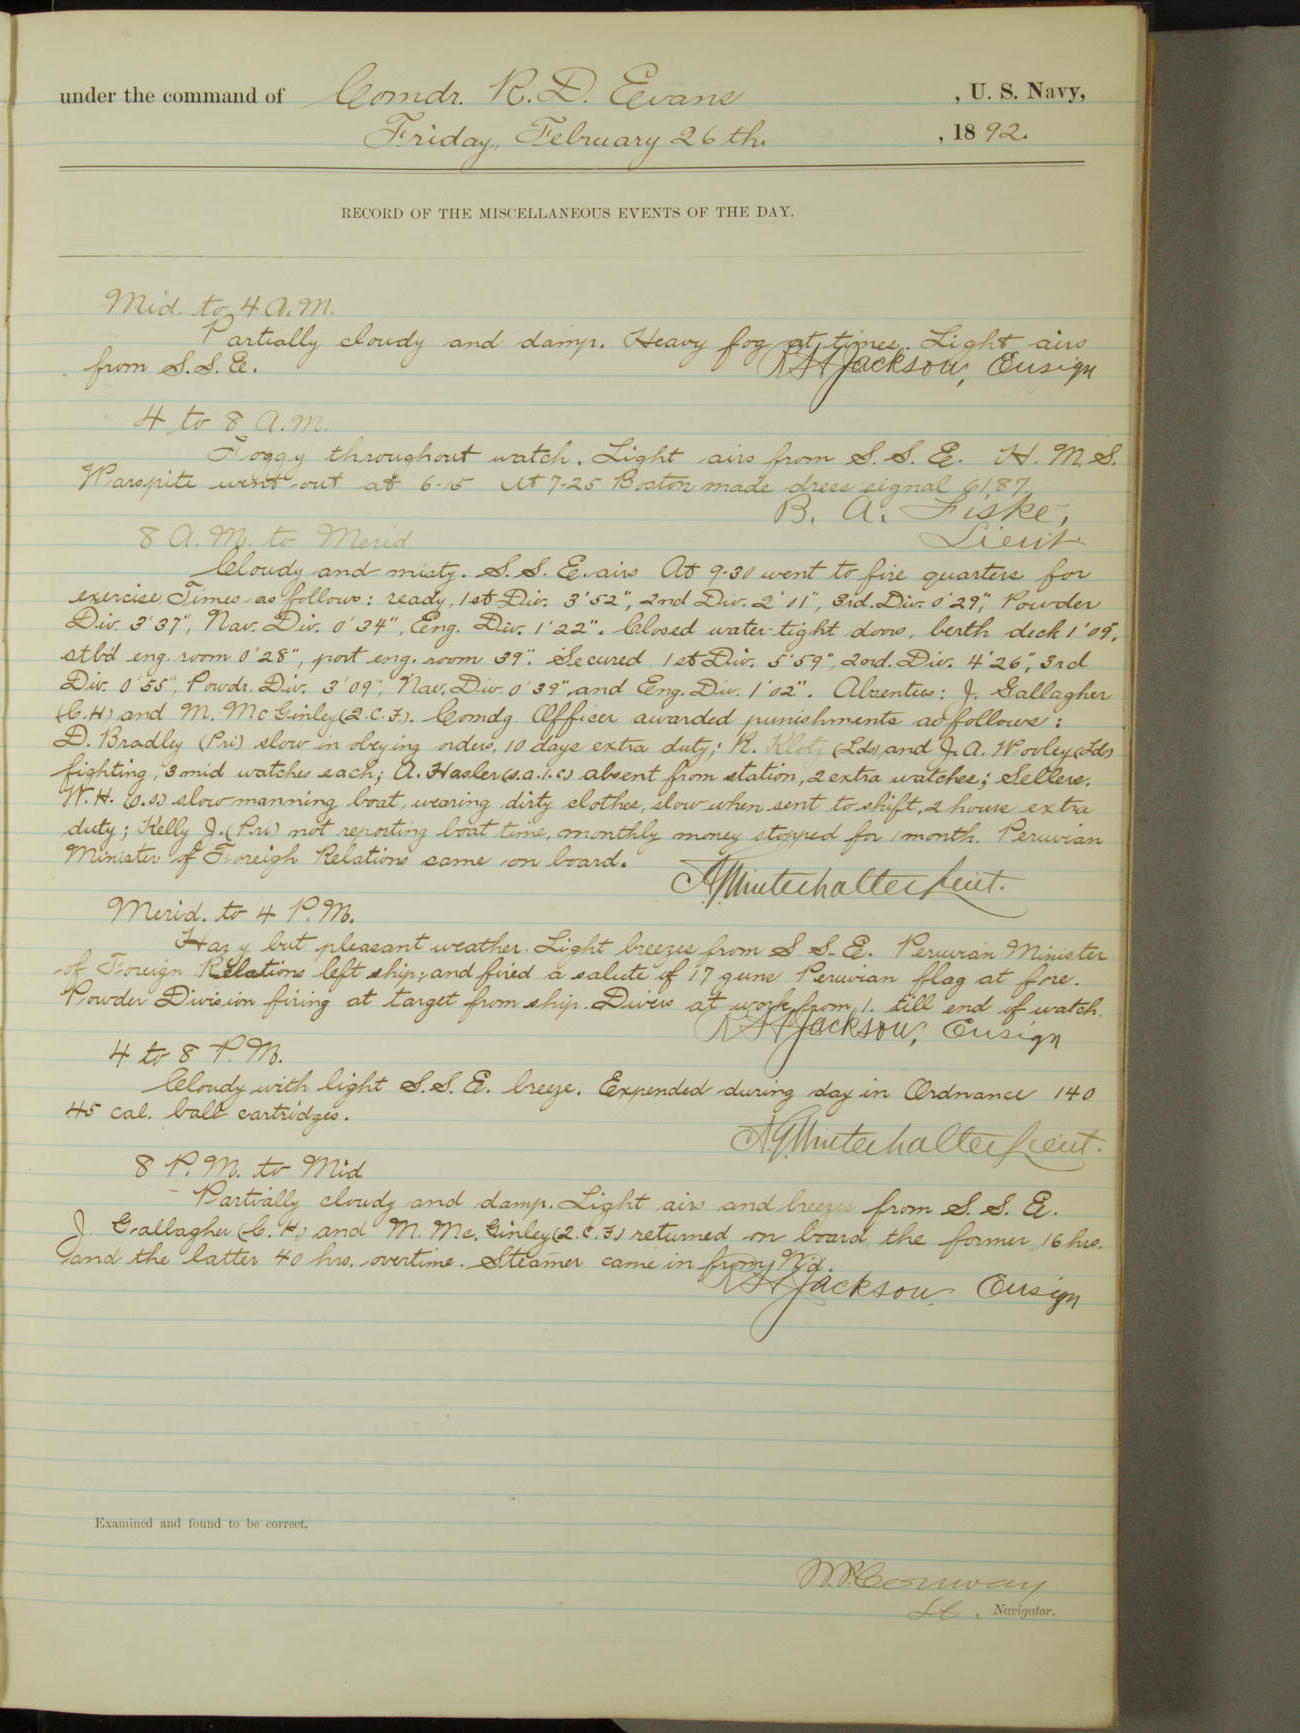 under the command of Comdr. R. D. Evans , U. S. Navy,
Friday, February 26th. , 1892.
RECORD OF THE MISCELLANEOUS EVENTS OF THE DAY.
Mid. to 4 A.M.
Partially cloudy and damp. Heavy fog at times. Light airs
from S.S.E.
Jackson, Ensign
4 to 8 A.M.
Foggy throughout watch. Light airs from S. S. E. H. M. S.
Warspite went out at 6-15 At 7-25 Boston made dress signal 6187.
B. A. Fiske,
Lieut
8 A.M. to Merid
Cloudy and misty. S. S. E. airs At 9-30 went to fire quarters for
exercise. Times as follows: ready, 1st Div. 3'52", 2nd Div. 2'11", 3rd. Div. 0'29", Powder
Div. 3'37", Nav. Div. 0'34", Eng. Div. 1'22". Closed water-tight doors, berth deck 1'09",
stb'd eng. room 0'28", port eng. room 39". Secured 1st Div. 5'59", 2nd. Div. 4'26", 3rd
Div. 0'55", Powdr. Div. 3'09", Nav. Div. 0'39" and Eng. Div. 1'02". Absentees: J. Gallagher
(C.H) and M. McGinley (2.C.F). Comdg Officer awarded punishments as follows:
D. Bradley (Pri) slow in obeying orders, 10 days extra duty; R. Klotz (Lds) and J. A. Wooley (Lds)
fighting, 3 mid watches each; A. Hasler (S.A.1.C) absent from station, 2 extra watches; Sellers.
W. H. (O.S) slow manning boat, wearing dirty clothes, slow when sent to shift, 2 hours extra
duty; Kelly J. (Pri) not reporting boat time, monthly money stopped for 1 month. Peruvian
Minister of Foreigh Relations came on board.
A G Winterhalter Lieut.
Merid. to 4 P.M.
Hazy but pleasant weather. Light breezes from S. S. E. Peruvian Minister
of Foreign Relations left ship; and fired a salute of 17 guns Peruvian flag at fore.
Powder Division firing at target from ship. Divers at work from 1. till end of watch.
Jackson, Ensign
4 to 8 P.M.
Cloudy with light S. S. E. breeze. Expended during day in Ordnance 140
45 cal. ball cartridges.
A G Winterhalter Lieut.
8 P.M. to Mid
Partially cloudy and damp. Light airs and breezes from S. S. E.
J. Gallagher (C. H.) and M. Mc. Ginley (2.C.F) returned on board, the former 16 hrs.
and the latter 40 hrs. overtime. Steamer came in from N'd.
Jackson, Ensign
Examined and found to be correct.
W. P. Conway
Lt. , Navigator.